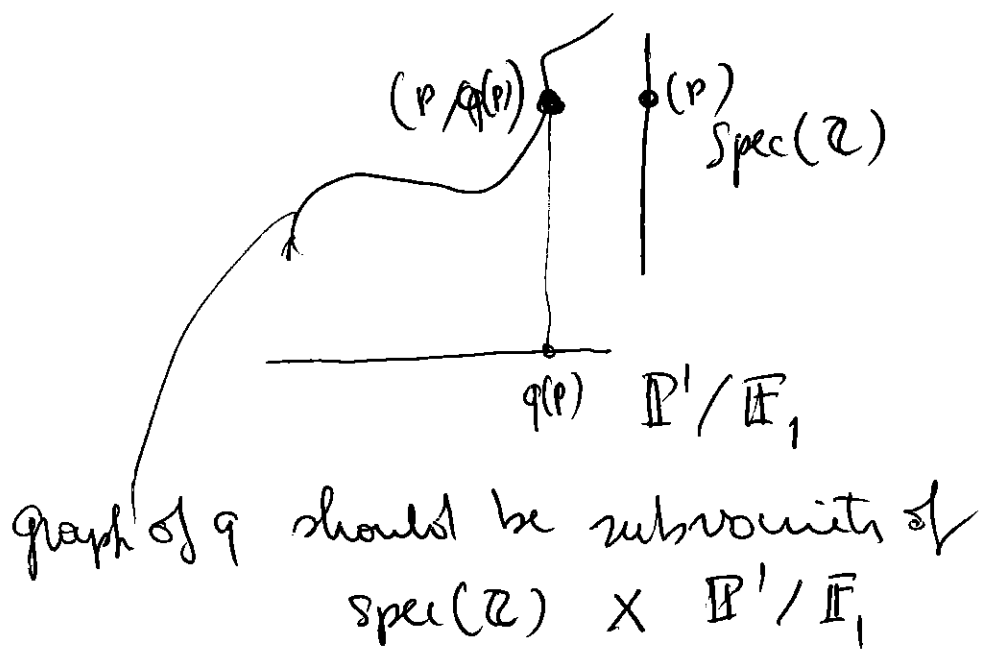 (p, q(p))
(p)
Spec(ℤ)
q(p) ℙ¹/𝔽₁
graph of q should be subvariety of
spec(ℤ) × ℙ¹/𝔽₁